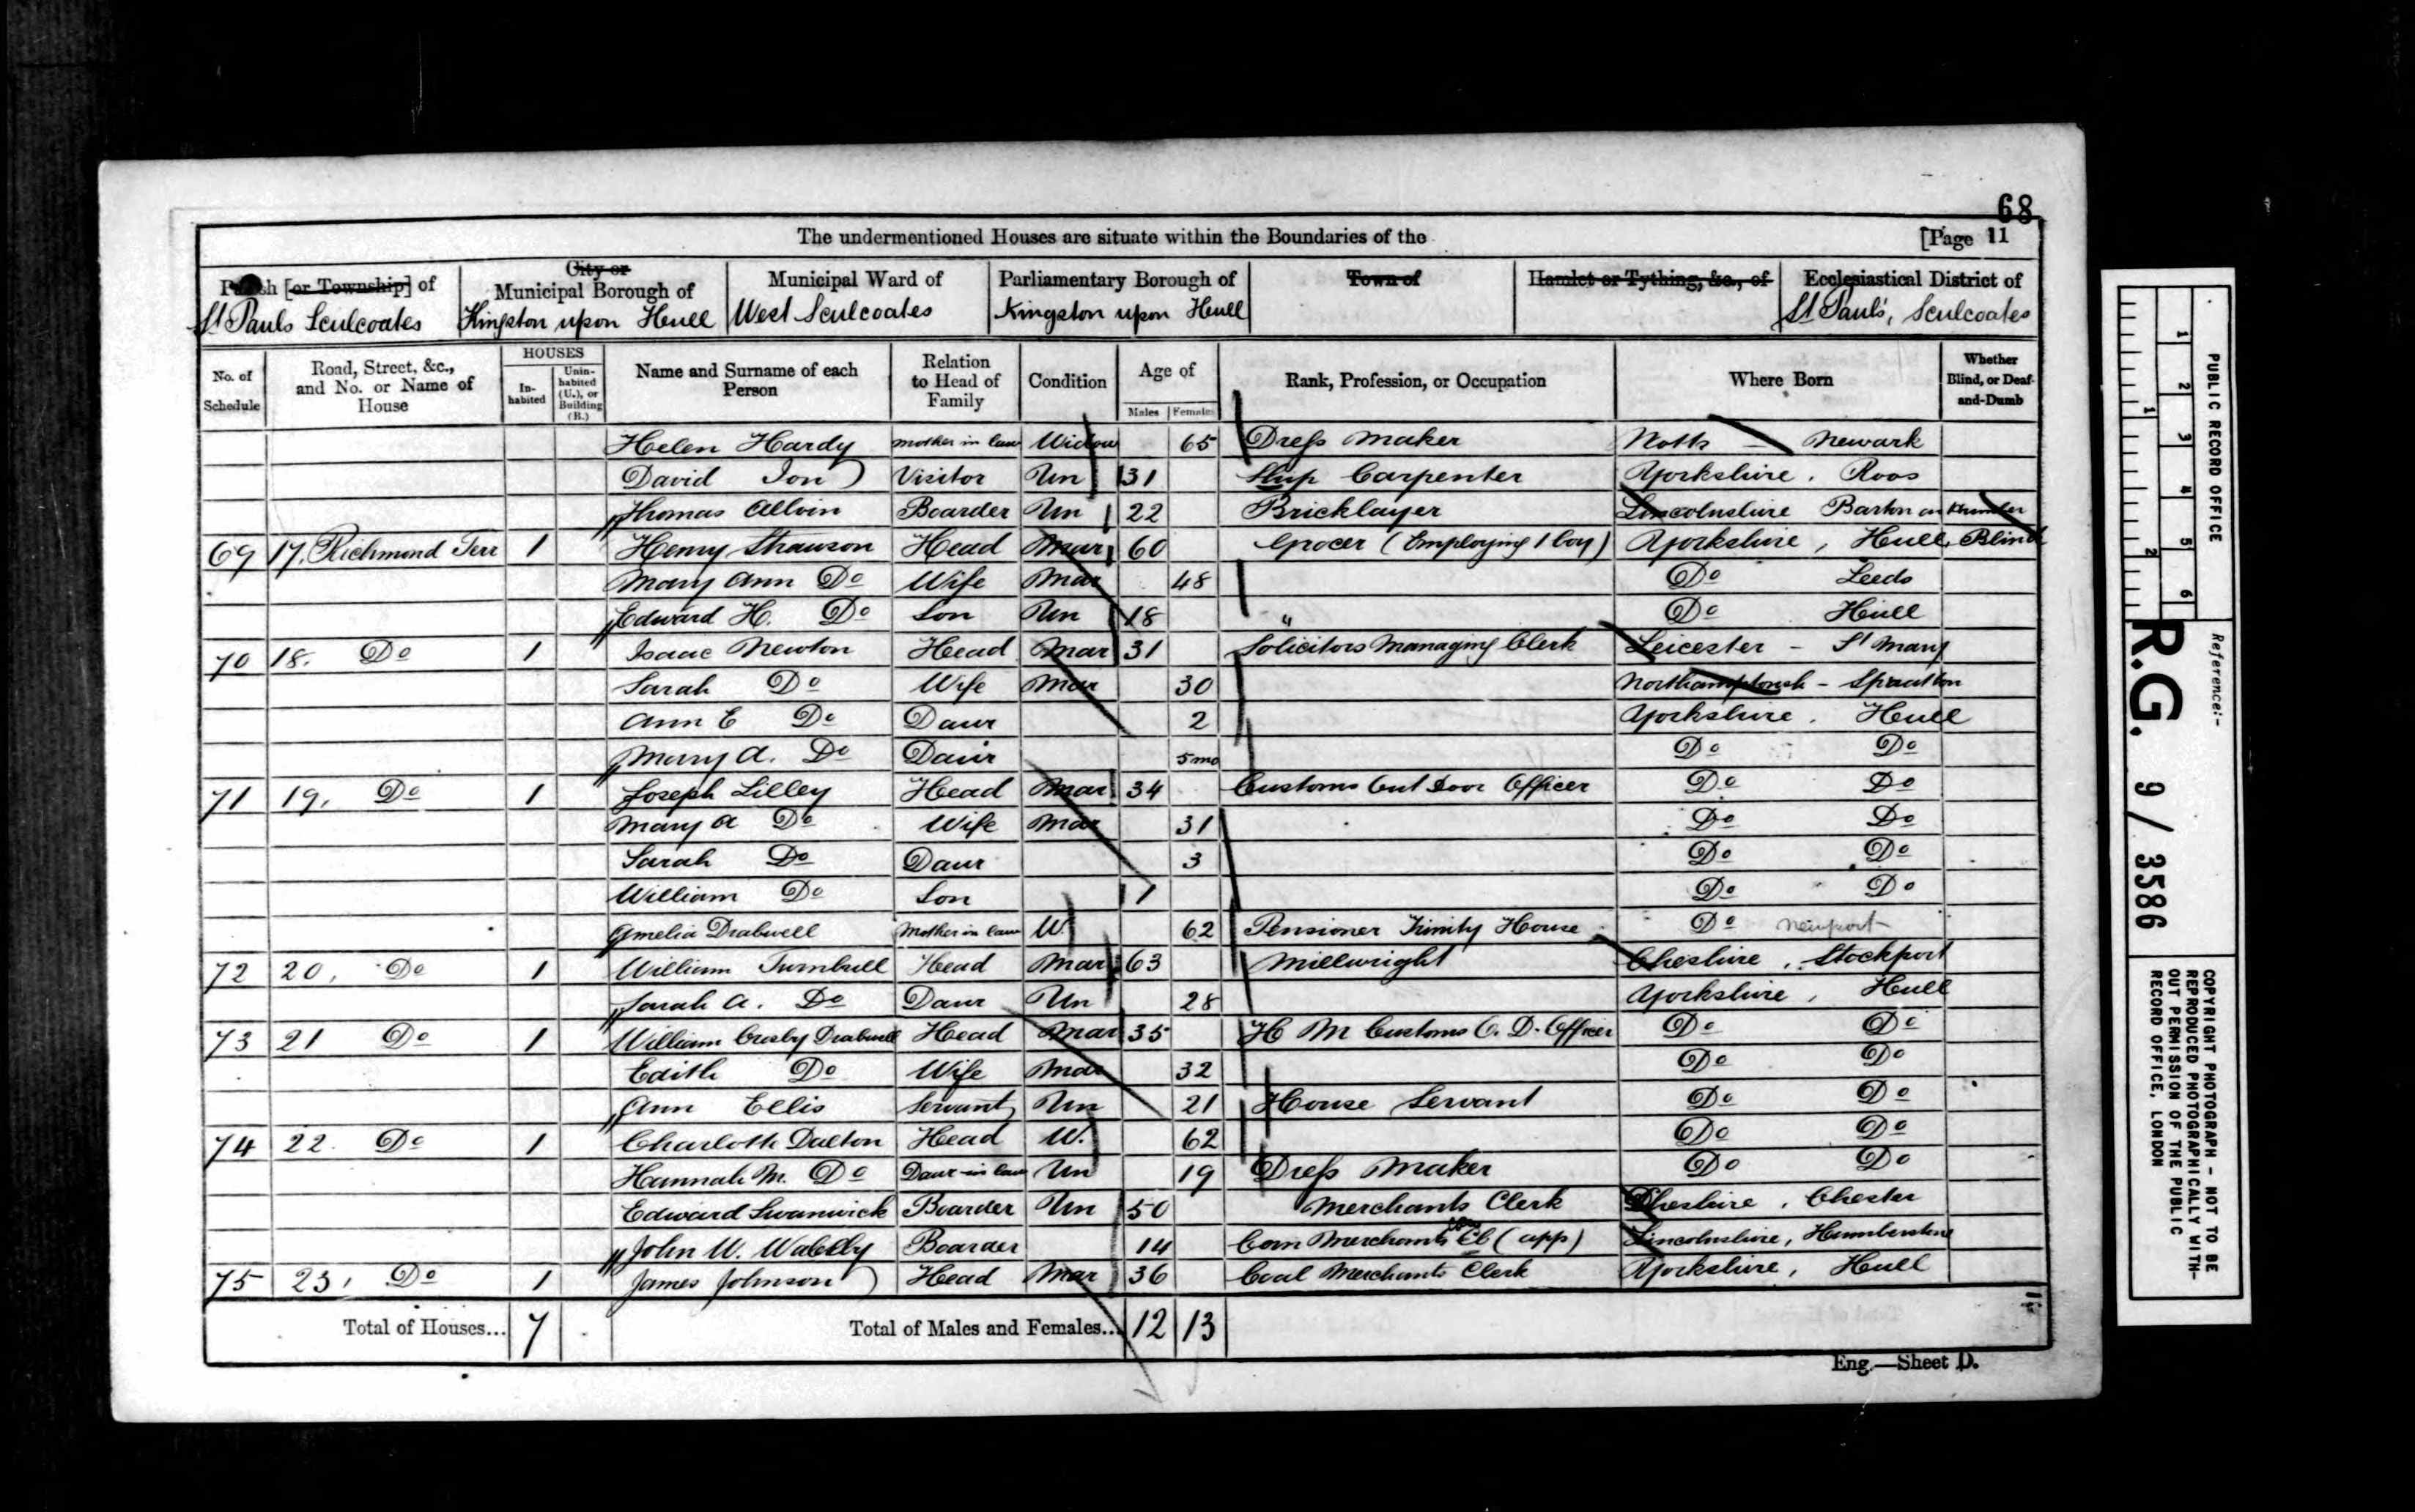 68
The undermentioned Houses are situate within the Boundaries of the [Page 11
Parish [or Township] of City or Municipal Borough of Municipal Ward of Parliamentary Borough of Town of Hamlet or Tything, &c., of Ecclesiastical District of
St Pauls Sculcoates Kingston upon Hull West Sculcoates Kingston upon Hull St Paul's, Sculcoates
No. of Schedule Road, Street, &c., and No. or Name of House HOUSES Inhabited Uninhabited (U.), or Building (B.) Name and Surname of each Person Relation to Head of Family Condition Age of Males Females Rank, Profession, or Occupation Where Born Whether Blind, or Deaf-and-Dumb
Helen Hardy Mother in law Widow 65 Dress Maker Notts — Newark
David Ion Visitor Un 31 Ship Carpenter Yorkshire, Roos
Thomas Allvin Boarder Un 22 Bricklayer Lincolnshire Barton on Humber
69 17, Richmond Terr 1 Henry Strawson Head Mar 60 Grocer (Employing 1 boy) Yorkshire, Hull, Blind
Mary Ann Do Wife Mar 48 Do Leeds
Edward H. Do Son Un 18 " Do Hull
70 18. Do 1 Isaac Newton Head Mar 31 Solicitors Managing Clerk Leicester - St Mary
Sarah Do Wife Mar 30 Northamptonsh - Spratton
Ann E Do Daur 2 Yorkshire, Hull
Mary A. Do Daur 5 mo Do Do
71 19, Do 1 Joseph Lilley Head Mar 34 Customs Out Door Officer Do Do
Mary A Do Wife Mar 31 Do Do
Sarah Do Daur 3 Do Do
William Do Son 1 Do Do
Amelia Drabwell Mother in law W. 62 Pensioner Trinity House Do Newport
72 20, Do 1 William Turnbull Head Mar 63 Millwright Cheshire, Stockport
Sarah A. Do Daur Un 28 Yorkshire, Hull
73 21 Do 1 William Crosby Drabwell Head Mar 35 H M Customs O. D. Officer Do Do
Edith Do Wife Mar 32 Do Do
Ann Ellis Servant Un 21 House Servant Do Do
74 22. Do 1 Charlotte Dalton Head W. 62 Do Do
Hannah M. Do Daur-in law Un 19 Dress Maker Do Do
Edward Swanwick Boarder Un 50 Merchants Clerk Cheshire, Chester
John W. Boarder 14 Corn Merchants (app) Lincolnshire,
75 23, Do 1 James Johnson Head Mar 36 Coal Merchants Clerk Yorkshire, Hull
Total of Houses... 7 Total of Males and Females... 12 13
Eng.—Sheet D.
PUBLIC RECORD OFFICE
1 2 3 4 5 6
1 2
Reference:-
R.G. 9/3586
COPYRIGHT PHOTOGRAPH - NOT TO BE
REPRODUCED PHOTOGRAPHICALLY WITH-
OUT PERMISSION OF THE PUBLIC
RECORD OFFICE, LONDON